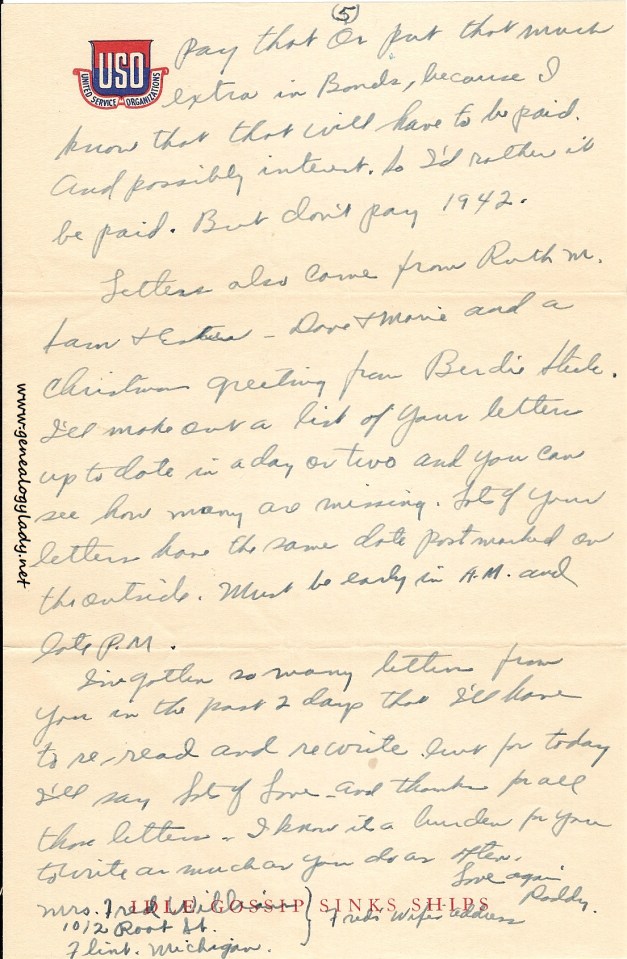 5
USO
UNITED SERVICE ORGANIZATIONS
pay that or put that much
extra in Bonds, because I
know that that will have to be paid.
And possibly interest. So I'd rather it
be paid. But don't pay 1942.
Letters also came from Ruth M.
+ - Dave + Marie and a
Christmas greeting from Berdie
I'll make out a list of your letters
up to date in a day or two and you can
see how many are missing. Lots of your
letters have the same date postmarked on
the outside. Must be early in A.M. and
late P.M.
I've gotten so many letters from
you in the past 2 days that I'll have
to re-read and rewrite but for today
I'll say lots of love and thanks for all
those letters. I know it's a burden for you
to write as much as you do as often.
Love again
Roddy.
IDLE GOSSIP SINKS SHIPS
Mrs. Fred Williams
1012 Root St.
Flint. Michigan.
Freds Wifes address
www.genealogylady.net